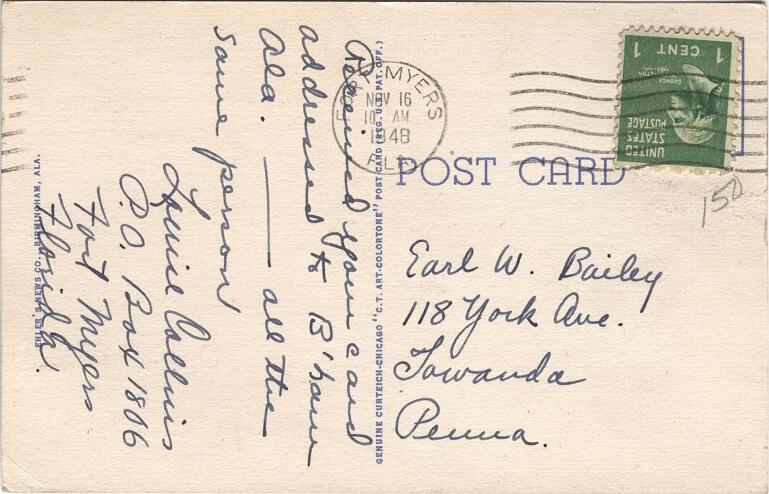 Received your card
addressed to B'ham
Ala. —— all the
same person
Louise Collins
P.O. Box 1806
Fort Myers
Florida.
EHLER'S NEWS CO., BIRMINGHAM, ALA.
GENUINE CURTEICH-CHICAGO "C.T. ART-COLORTONE" POST CARD (REG. U.S. PAT. OFF.)
FORT MYERS
NOV 16
10 AM
1948
FLA.
1 CENT 1
GEORGE
WASHINGTON
UNITED
STATES
POSTAGE
POST CARD
150
Earl W. Bailey
118 York Ave.
Towanda
Penna.